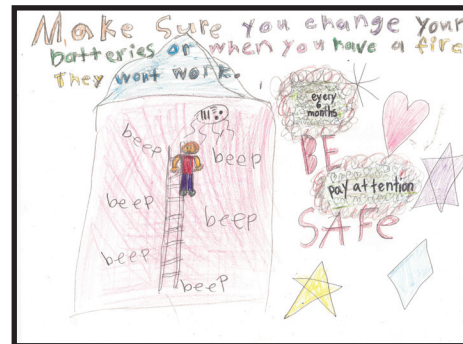 Make Sure you change your
batteries or when you have a fire
They wont work.
every
6
months
BE
pay attention
SAFe
beep
beep
beep
beep
beep
beep